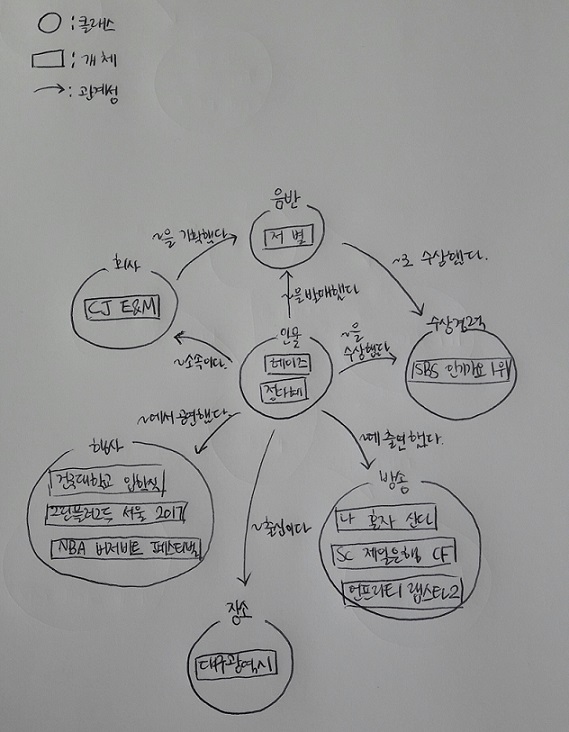 : 클래스
: 개체
: 관계성
음반
저 별
~을 기획했다.
~로 수상했다.
회사
CJ E&M
~을 발매했다.
인물
헤이즈
정다혜
~을
수상했다.
수상경력
SBS 인기가요 1위
~소속이다.
~에서 공연했다.
~에 출연했다.
행사
건국대학교 입학식
그린플러그드 서울 2017
NBA 버저비트 페스티벌
방송
나 혼자 산다
SC 제일은행 CF
언프리티 랩스타2
~출신이다
장소
대구광역시